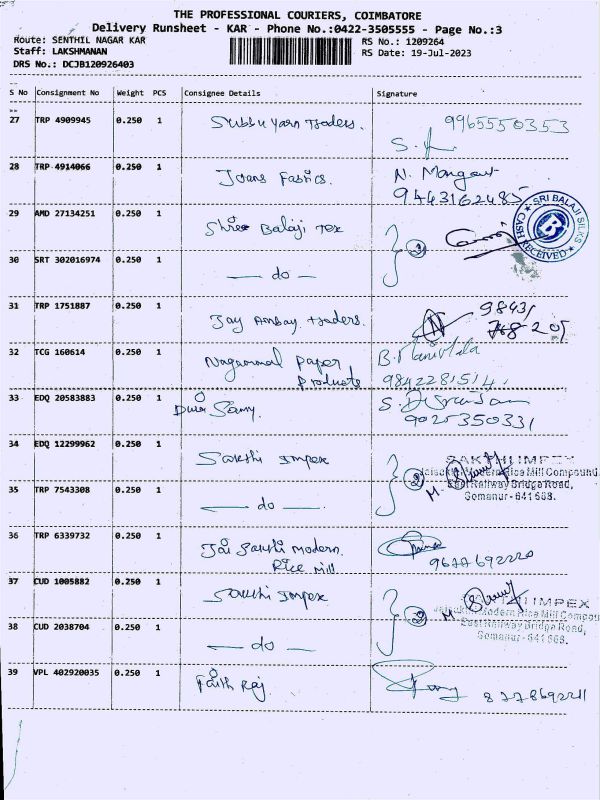 THE PROFESSIONAL COURIERS, COIMBATORE
Delivery Runsheet - KAR - Phone No.:0422-3505555 - Page No.:3
Route: SENTHIL NAGAR KAR RS No.: 1209264
Staff: LAKSHMANAN RS Date: 19-Jul-2023
DRS No.: DCJB120926403
S No Consignment No Weight PCS Consignee Details Signature
27 TRP 4909945 0.250 1 Subbu Yarn Traders. 9965550353
28 TRP 4914066 0.250 1 Joans Fabrics. N. Mangai
9443162485
SRI BALAJI SILKS
CASH RECEIVED
B
29 AMD 27134251 0.250 1 Shree Balaji Tex 2
30 SRT 302016974 0.250 1 — do —
31 TRP 1751887 0.250 1 Jay Ambay Traders. 98431
768 205
32 TCG 160614 0.250 1 Nagammal Paper Products
9842281514.
33 EDQ 20583883 0.250 1 Durai Samy.
9025350331
34 EDQ 12299962 0.250 1 Sakthi Impex 2
SAKTHI IMPEX
Jaisakthi Modern Rice Mill Compound,
East Railway Bridge Road,
Somanur - 641 668.
35 TRP 7543308 0.250 1 — do —
36 TRP 6339732 0.250 1 Jai Sakthi Modern
Rice Mill 9677692220
37 CUD 1005882 0.250 1 Sakthi Impex 2
IMPEX
Modern Rice Mill Compou
East Railway Bridge Road,
Somanur - 641 668.
38 CUD 2038704 0.250 1 — do —
39 VPL 402920035 0.250 1 Faith Raj 8778692211